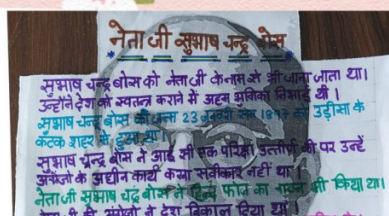 नेता जी सुभाष चन्द्र बोस
सुभाष चन्द्र बोस को नेता जी के नाम से भी जाना जाता था।
उन्होंने देश को स्वतन्त्र कराने में अहम भूमिका निभाई थी।
सुभाष चन्द्र बोस का जन्म 23 जनवरी सन 1897 को उड़ीसा के
कटक शहर में हुआ था।
सुभाष चन्द्र बोस ने आई सी एक परिक्षा उत्तीर्ण की पर उन्हें
अंग्रेजो के अधीन कार्य करना स्वीकार नहीं था।
नेताजी सुभाष चंद्र बोस ने हिन्द फौज का गठन भी किया था।
नेता जी को अंग्रेजो ने देश निकाला दिया था